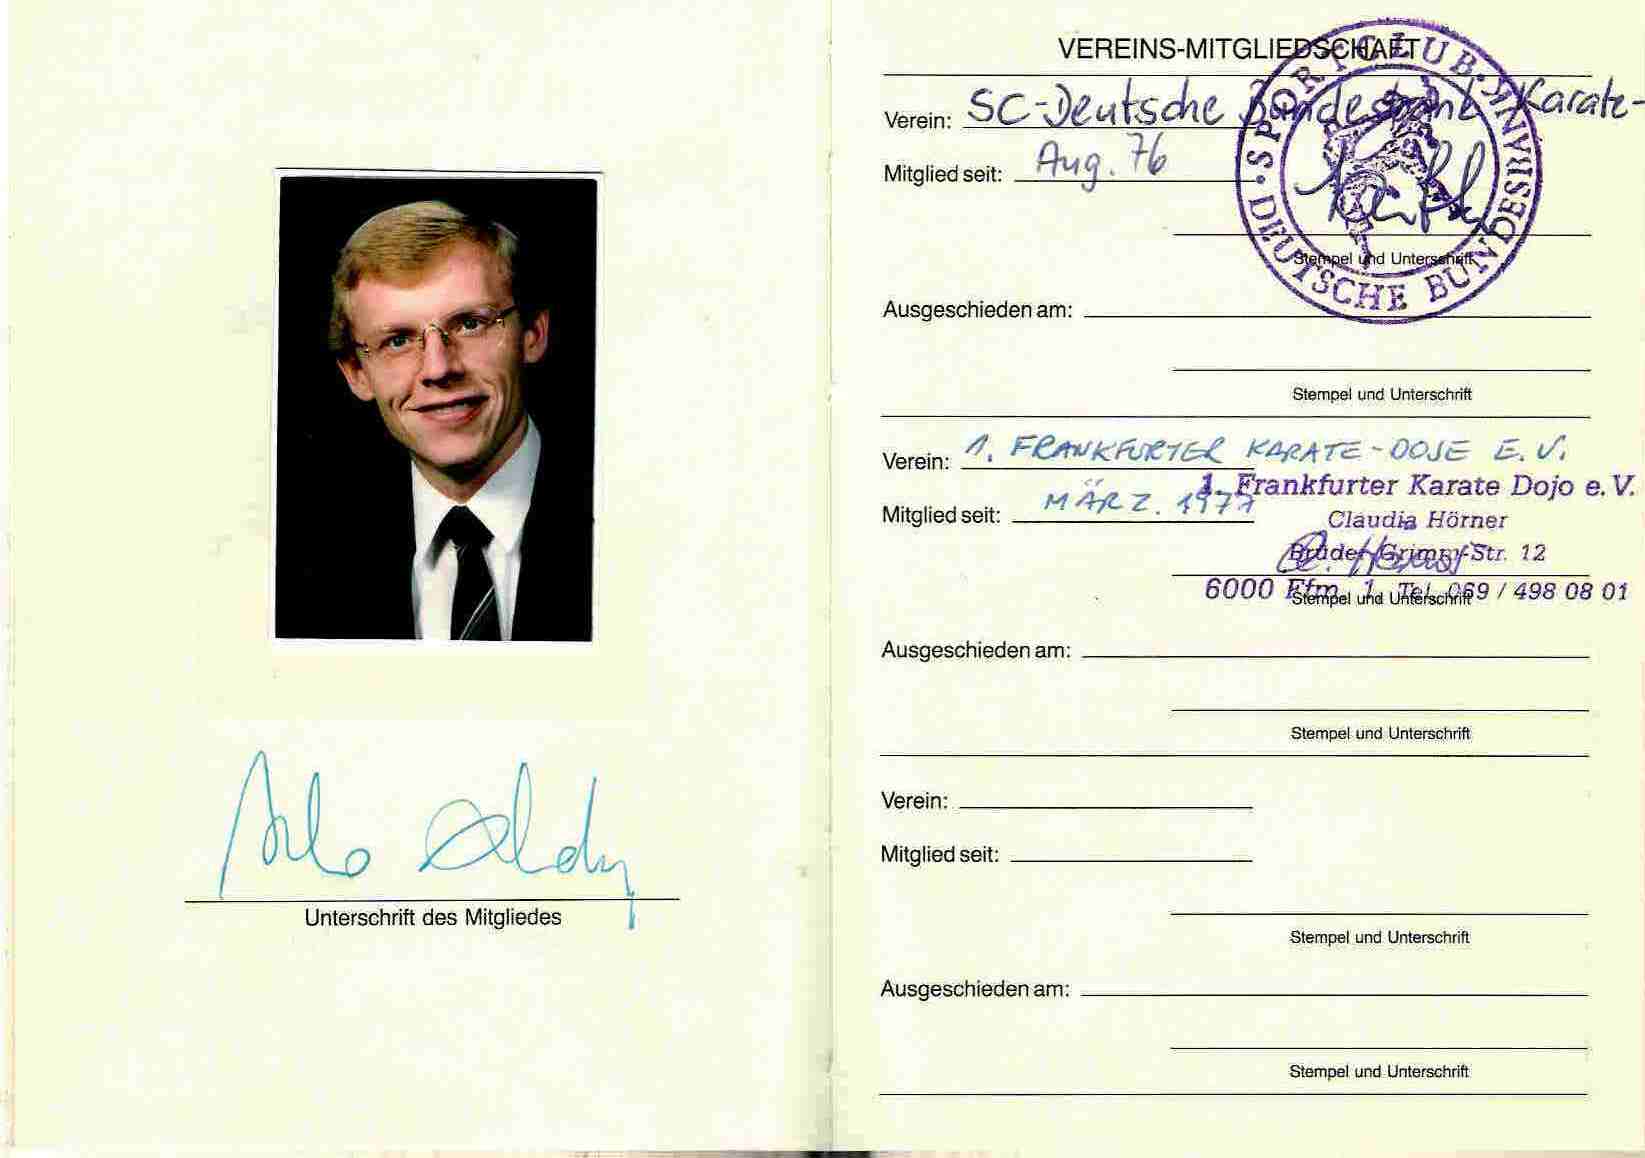 Unterschrift des Mitgliedes
VEREINS-MITGLIEDSCHAFT
Verein: SC-Deutsche Bundesbank Karate-
Mitglied seit: Aug. 76
SPORTCLUB · DEUTSCHE BUNDESBANK
Stempel und Unterschrift
Ausgeschieden am:
Stempel und Unterschrift
Verein: 1. FRANKFURTER KARATE-DOJE E.V.
1. Frankfurter Karate Dojo e. V.
Mitglied seit: MÄRZ. 1977
Claudia Hörner
Brüder-Grimm-Str. 12
6000 Ffm. 1 Tel. 069 / 498 08 01
Stempel und Unterschrift
Ausgeschieden am:
Stempel und Unterschrift
Verein:
Mitglied seit:
Stempel und Unterschrift
Ausgeschieden am:
Stempel und Unterschrift